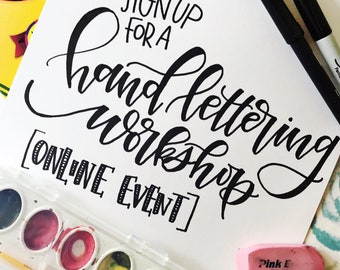 SIGN UP
FOR A
hand lettering
workshop
[ONLINE EVENT]
Pink